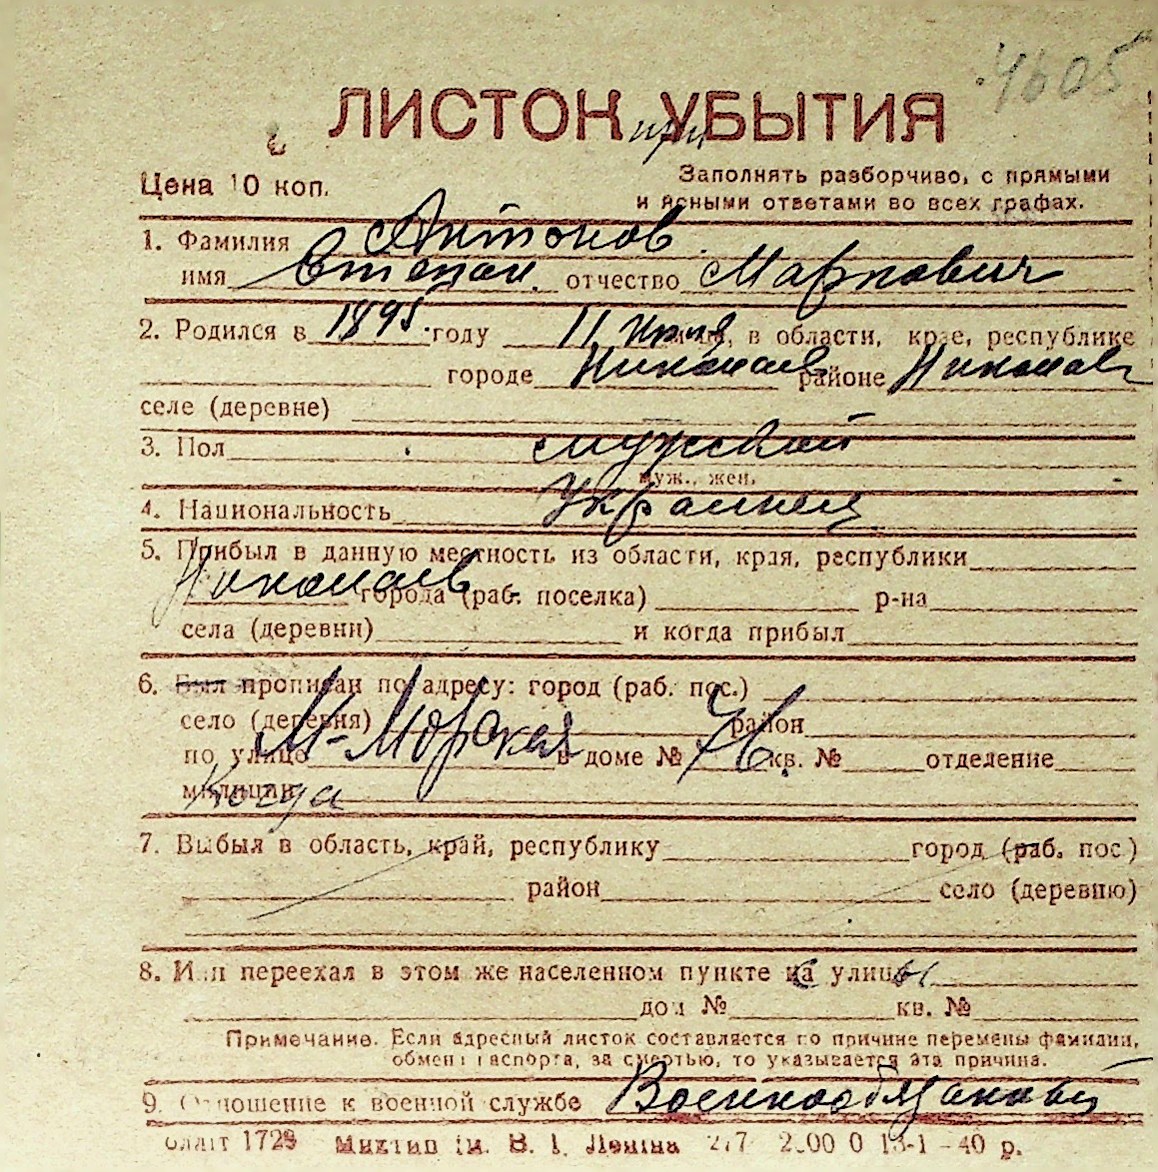 4605
ЛИСТОК УБЫТИЯ
при
Цена 10 коп.
Заполнять разборчиво, с прямыми
и ясными ответами во всех графах.
1. Фамилия Антонов
имя Степан отчество Маркович
2. Родился в 1895 году 11 м-ца, в области, крае, республике
городе Николаев районе Николаев
селе (деревне)
3. Пол мужской
муж., жен.
4. Национальность Украинец
5. Прибыл в данную местность из области, края, республики
Николаев города (раб. поселка) р-на
села (деревни) и когда прибыл
6. Был прописан по адресу: город (раб. пос.)
село (деревня) район
по улице М-Морская в доме № 76 кв. № отделение
милиции Когда
7. Выбыл в область, край, республику город (раб. пос)
район село (деревню)
8. Или переехал в этом же населенном пункте с улицы
дом № кв. №
Примечание. Если адресный листок составляется по причине перемены фамилии,
обмена паспорта, за смертью, то указывается эта причина.
9. Отношение к военной службе Военнообязанный
1729 ім. В. І. Леніна 13-1-40 р.